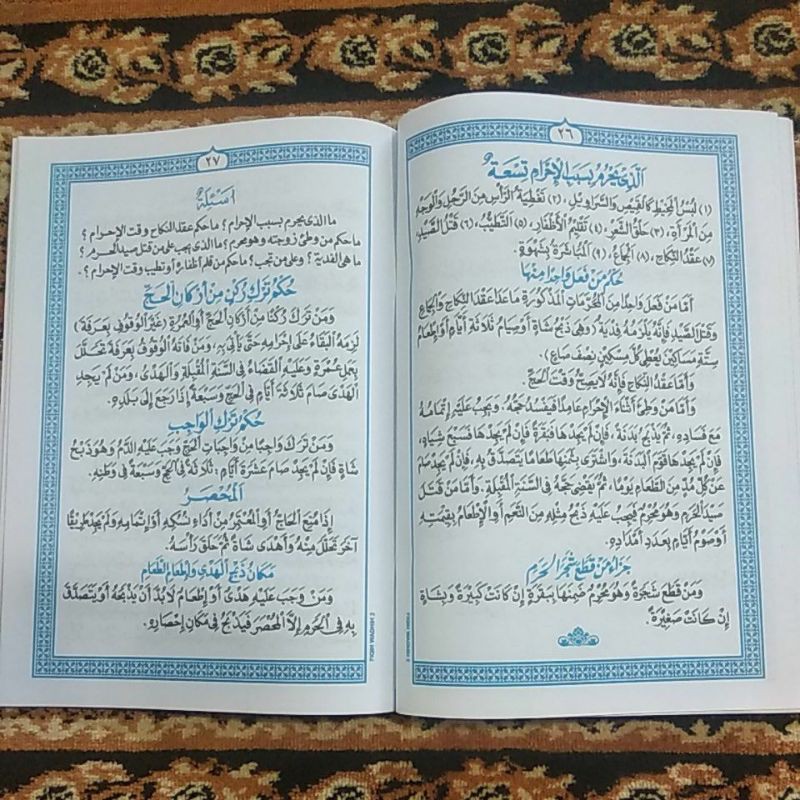 ٢٦
اَلَّذِى يَحْرُمُ بِسَبَبِ الْإِحْرَامِ تِسْعَةٌ
(١) لُبْسُ الْمَخِيْطِ كَالْقَمِيْصِ وَالسَّرَاوِيْلِ، (٢) تَغْطِيَةُ الرَّأْسِ مِنَ الرَّجُلِ وَالْوَجْهِ
مِنَ الْمَرْأَةِ، (٣) حَلْقُ الشَّعْرِ، (٤) تَقْلِيْمُ الْأَظْفَارِ، (٥) التَّطَيُّبُ، (٦) قَتْلُ الصَّيْدِ،
(٧) عَقْدُ النِّكَاحِ، (٨) الْجِمَاعُ، (٩) الْمُبَاشَرَةُ بِشَهْوَةٍ
حُكْمُ مَنْ فَعَلَ وَاحِدًا مِنْهَا
أَمَّا مَنْ فَعَلَ وَاحِدًا مِنَ الْمُحَرَّمَاتِ الْمَذْكُوْرَةِ مَاعَدَا عَقْدَ النِّكَاحِ وَالْجِمَاعِ
وَقَتْلَ الصَّيْدِ فَإِنَّهُ يَلْزَمُهُ فِدْيَةٌ (وَهِيَ ذَبْحُ شَاةٍ أَوْ صِيَامُ ثَلَاثَةِ أَيَّامٍ أَوْ إِطْعَامُ
سِتَّةِ مَسَاكِيْنَ يُعْطِي كُلَّ مِسْكِيْنٍ نِصْفَ صَاعٍ)
وَأَمَّا عَقْدُ النِّكَاحِ فَإِنَّهُ لَا يَصِحُّ وَقْتَ الْحَجِّ.
وَأَمَّا مَنْ وَطِئَ أَثْنَاءَ الْإِحْرَامِ عَامِدًا فَيَفْسُدُ حَجُّهُ، وَيَجِبُ عَلَيْهِ إِتْمَامُهُ
مَعَ فَسَادِهِ، ثُمَّ يَذْبَحُ بَدَنَةً، فَإِنْ لَمْ يَجِدْهَا فَبَقَرَةً فَإِنْ لَمْ يَجِدْهَا فَسَبْعَ شِيَاهٍ،
فَإِنْ لَمْ يَجِدْهَا قَوَّمَ الْبَدَنَةَ، وَاشْتَرَى بِثَمَنِهَا طَعَامًا يَتَصَدَّقُ بِهِ، فَإِنْ لَمْ يَجِدْ صَامَ
عَنْ كُلِّ مُدٍّ مِنَ الطَّعَامِ يَوْمًا، ثُمَّ يَقْضِي حَجَّهُ فِي السَّنَةِ الْمُقْبِلَةِ. وَأَمَّا مَنْ قَتَلَ
صَيْدَ الْحَرَمِ وَهُوَ مُحْرِمٌ فَيَجِبُ عَلَيْهِ ذَبْحُ مِثْلِهِ مِنَ النَّعَمِ أَوِ الْإِطْعَامُ بِقِيْمَتِهِ
أَوْ صَوْمُ أَيَّامٍ بِعَدَدِ أَمْدَادِهِ.
جَزَاءُ مَنْ قَطَعَ شَجَرَ الْحَرَمِ
وَمَنْ قَطَعَ شَجَرَةً وَهُوَ مُحْرِمٌ ضَمِنَهَا بِبَقَرَةٍ إِنْ كَانَتْ كَبِيْرَةً وَبِشَاةٍ
إِنْ كَانَتْ صَغِيْرَةً.
٢٧
أَسْئِلَةٌ
ما الذى يحرم بسبب الإحرام ؟ ما حكم عقد النكاح وقت الإحرام ؟
ما حكم من وطئ زوجته وهو محرم ؟ ما الذى يجب على من قتل صيد الحرم ؟
ما هى الفدية ؟ وعلى من تجب ؟ ما حكم من قلم أظفاره أو تطيب وقت الإحرام ؟.
حُكْمُ تَرْكِ رُكْنٍ مِنْ أَرْكَانِ الْحَجِّ
وَمَنْ تَرَكَ رُكْنًا مِنْ أَرْكَانِ الْحَجِّ أَوِ الْعُمْرَةِ (غَيْرَ الْوُقُوْفِ بِعَرَفَةَ)
لَزِمَهُ الْبَقَاءُ عَلَى إِحْرَامِهِ حَتَّى يَأْتِيَ بِهِ، وَمَنْ فَاتَهُ الْوُقُوْفُ بِعَرَفَةَ تَحَلَّلَ
بِعَمَلِ عُمْرَةٍ وَعَلَيْهِ الْقَضَاءُ فِي السَّنَةِ الْمُقْبِلَةِ وَالْهَدْيُ، وَمَنْ لَمْ يَجِدِ
الْهَدْيَ صَامَ ثَلَاثَةَ أَيَّامٍ فِي الْحَجِّ وَسَبْعَةً إِذَا رَجَعَ إِلَى بَلَدِهِ.
حُكْمُ تَرْكِ الْوَاجِبِ
وَمَنْ تَرَكَ وَاجِبًا مِنْ وَاجِبَاتِ الْحَجِّ وَجَبَ عَلَيْهِ الدَّمُ وَهُوَ ذَبْحُ
شَاةٍ فَإِنْ لَمْ يَجِدْ صَامَ عَشْرَةَ أَيَّامٍ، ثَلَاثَةً فِي الْحَجِّ وَسَبْعَةً فِي وَطَنِهِ.
اَلْمُحْصَرُ
إِذَا مُنِعَ الْحَاجُّ أَوِ الْمُعْتَمِرُ مِنْ أَدَاءِ نُسُكِهِ أَوْ إِتْمَامِهِ وَلَمْ يَجِدْ طَرِيْقًا
آخَرَ تَحَلَّلَ مِنْهُ وَأَهْدَى شَاةً ثُمَّ حَلَقَ رَأْسَهُ.
مَكَانُ ذَبْحِ الْهَدْيِ وَإِطْعَامِ الطَّعَامِ
وَمَنْ وَجَبَ عَلَيْهِ هَدْيٌ أَوْ إِطْعَامٌ لَا بُدَّ أَنْ يَذْبَحَهُ أَوْ يَتَصَدَّقَ
بِهِ فِي الْحَرَمِ إِلَّا الْمُحْصَرَ فَيَذْبَحُ فِي مَكَانِ إِحْصَارِهِ.
FIQIH WADHIH 3